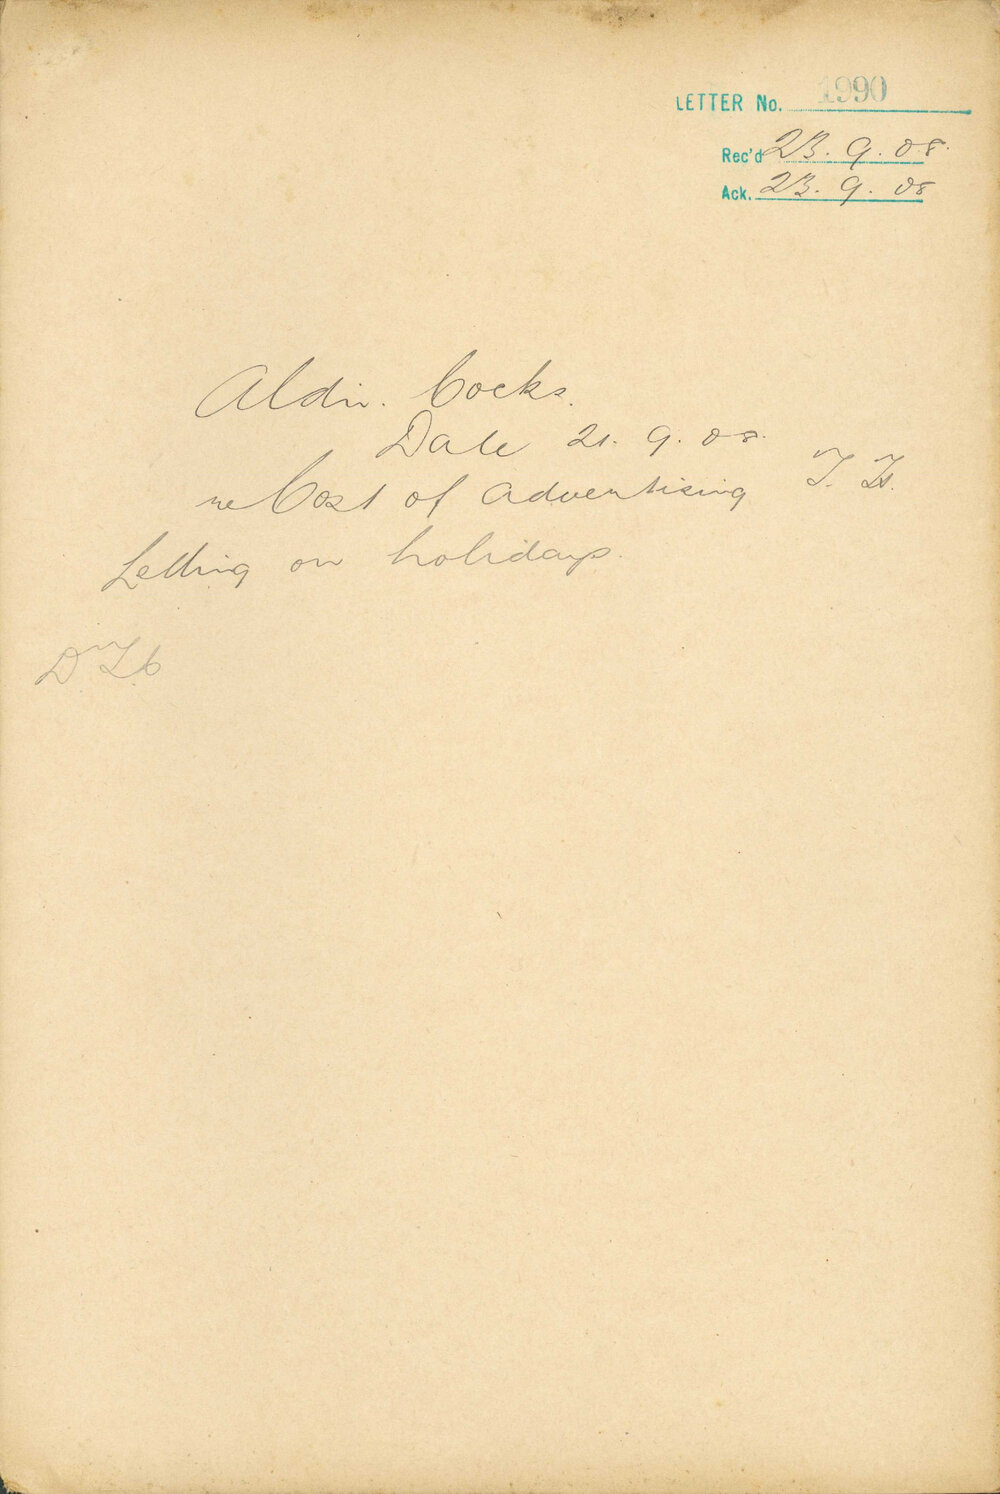 LETTER No. 1990
Rec'd 23. 9. 08.
Ack. 23. 9. 08
Aldn. Cocks.
Date 21. 9. 08.
re Cost of advertising T. H.
Letting on holidays.